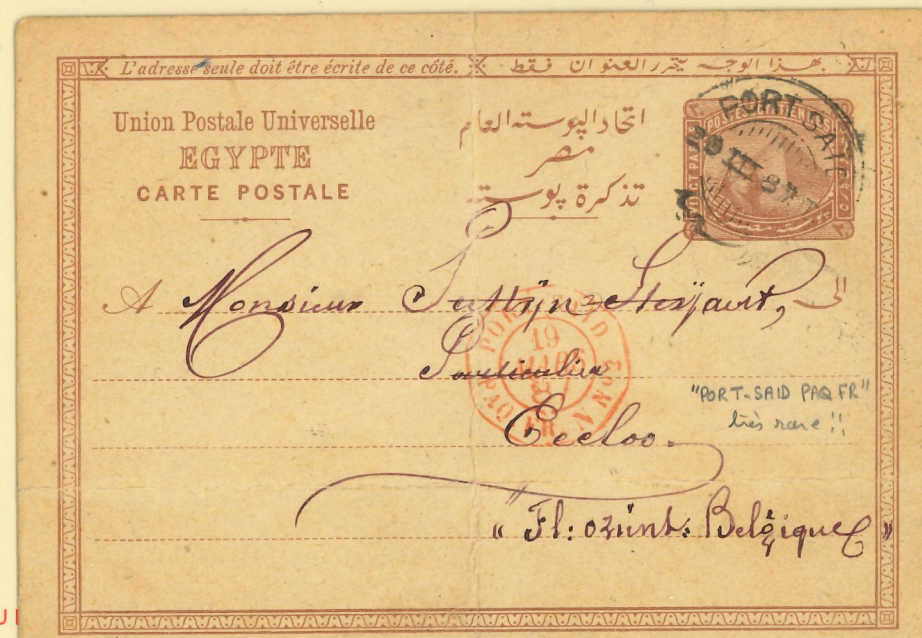 L'adresse seule doit être écrite de ce côté.
هذا الوجه يحرر العنوان فقط
Union Postale Universelle
EGYPTE
CARTE POSTALE
اتحاد البوسته العام
مصر
تذكرة بوسته
POSTES EGYPTIENNES
PORT-SAID
A Monsieur
الى
Particulier
Eecloo.
" Fl: orient: Belgique "
PORT SAID
19
MARS
PAQ FR
"PORT-SAID PAQ FR"
très rare !!